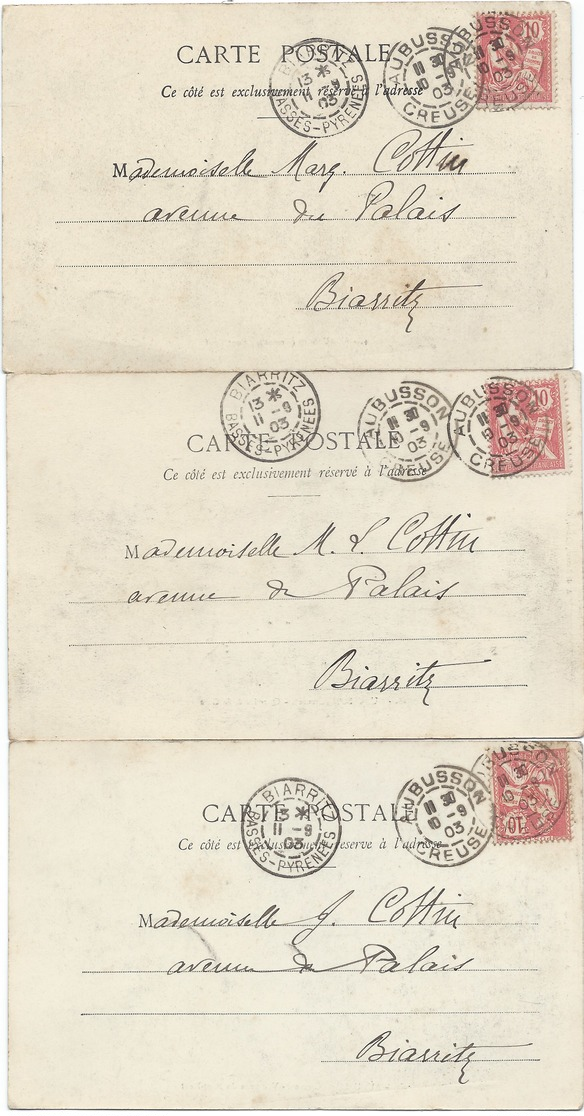 CARTE POSTALE
Ce côté est exclusivement réservé à l'adresse
BIARRITZ
13 *
11 -9
03
BASSES-PYRENEES
AUBUSSON
11 30
10 -9
03
CREUSE
AUBUSSON
11 30
10 -9
03
10
Mademoiselle Marg. Cottin
avenue du Palais
Biarritz
BIARRITZ
13 *
11 -9
03
BASSES-PYRENEES
AUBUSSON
11 30
10 -9
03
CREUSE
AUBUSSON
11 30
10 -9
03
CREUSE
10
CARTE POSTALE
Ce côté est exclusivement réservé à l'adresse
Mademoiselle M. L. Cottin
avenue du Palais
Biarritz
BIARRITZ
13 *
11 -9
03
BASSES-PYRENEES
AUBUSSON
11 30
10 -9
03
CREUSE
AUBUSSON
10
CARTE POSTALE
Ce côté est exclusivement réservé à l'adresse
Mademoiselle J. Cottin
avenue du Palais
Biarritz